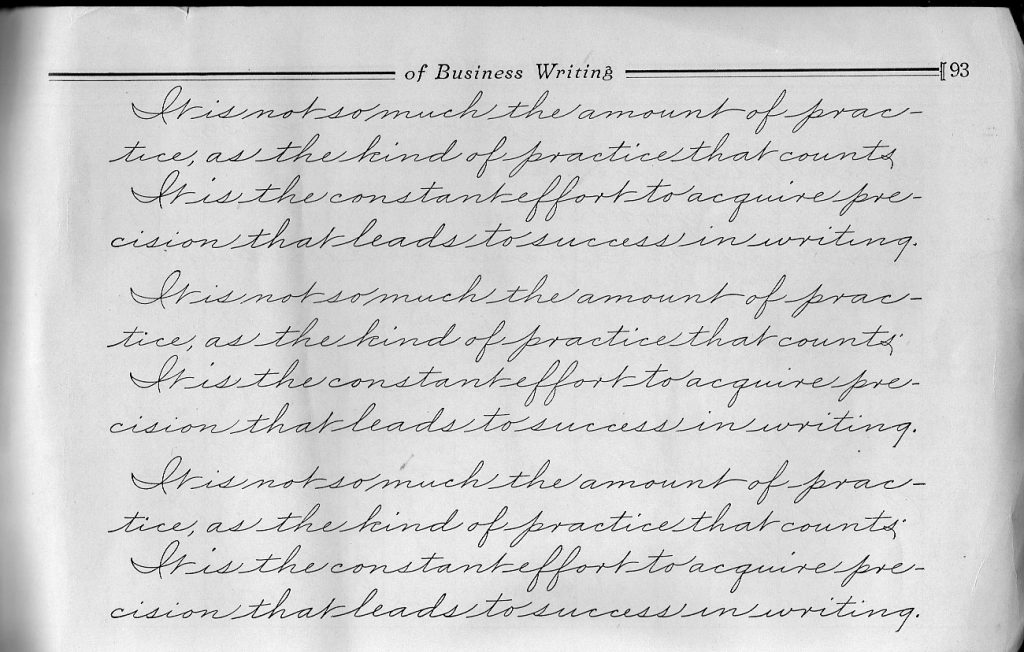 of Business Writing [93
It is not so much the amount of prac-
tice, as the kind of practice that counts,
It is the constant effort to acquire pre-
cision that leads to success in writing.
It is not so much the amount of prac-
tice, as the kind of practice that counts;
It is the constant effort to acquire pre-
cision that leads to success in writing.
It is not so much the amount of prac-
tice, as the kind of practice that counts;
It is the constant effort to acquire pre-
cision that leads to success in writing.